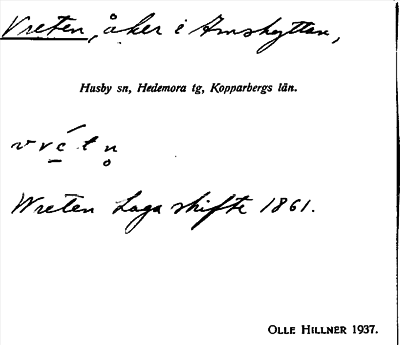 Vreten, åker i Amshyttan,
Husby sn, Hedemora tg, Kopparbergs län.
Wreten Laga skifte 1861.
OLLE HILLNER 1937.